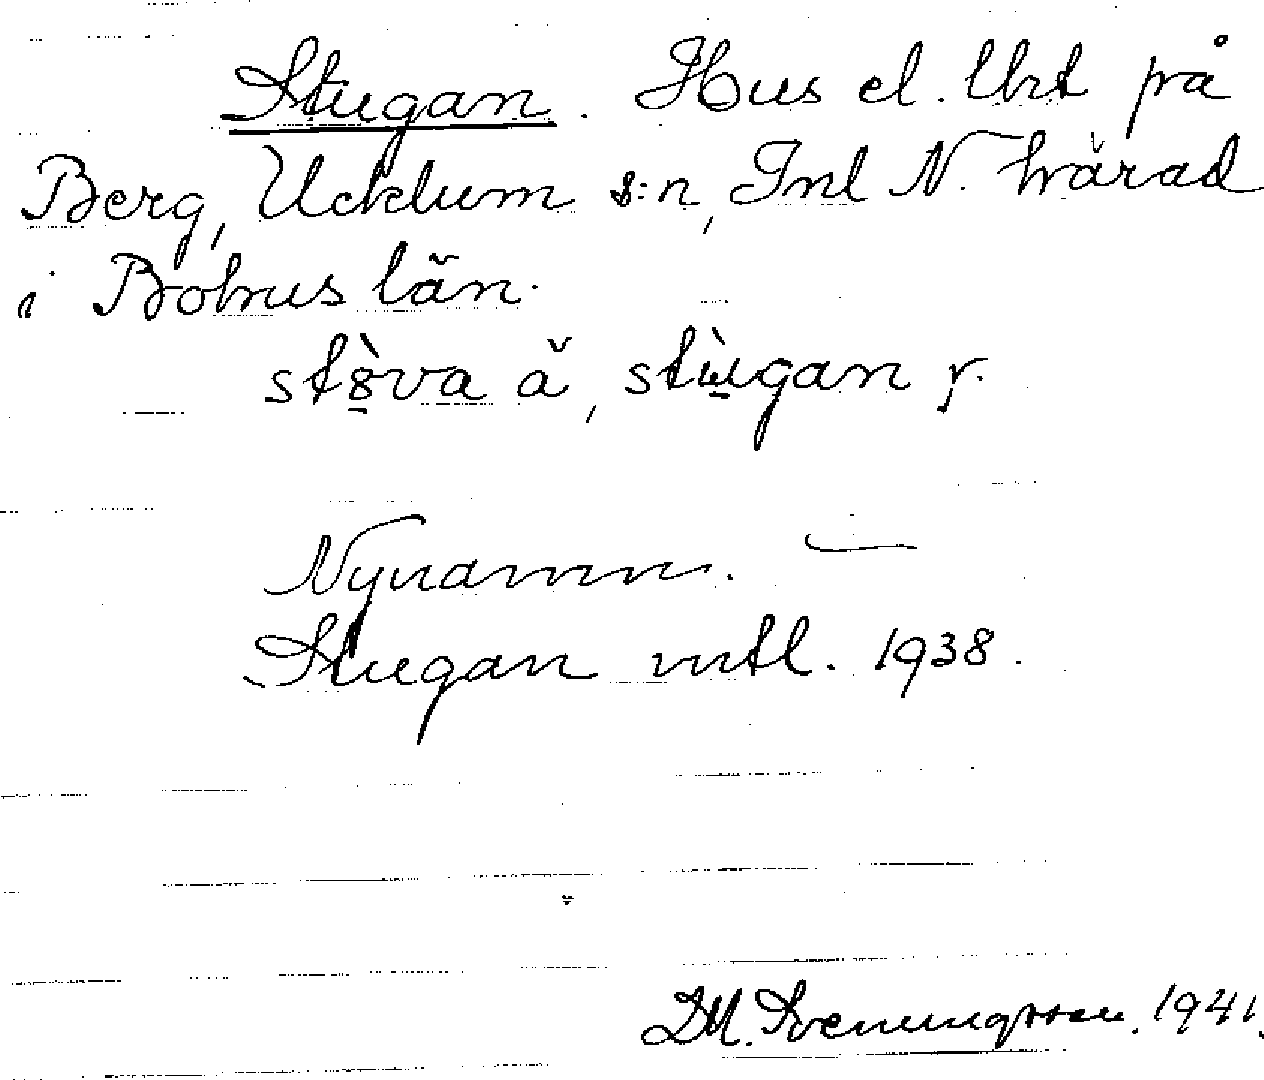 Stugan. Hus el. lht på
Berg, Ucklum s:n, Inl N. härad
i Bohus län.
stòva ä, stùgan y.
Nynamn.
Stugan mtl. 1938.
D.M. Sveningsson. 1941.